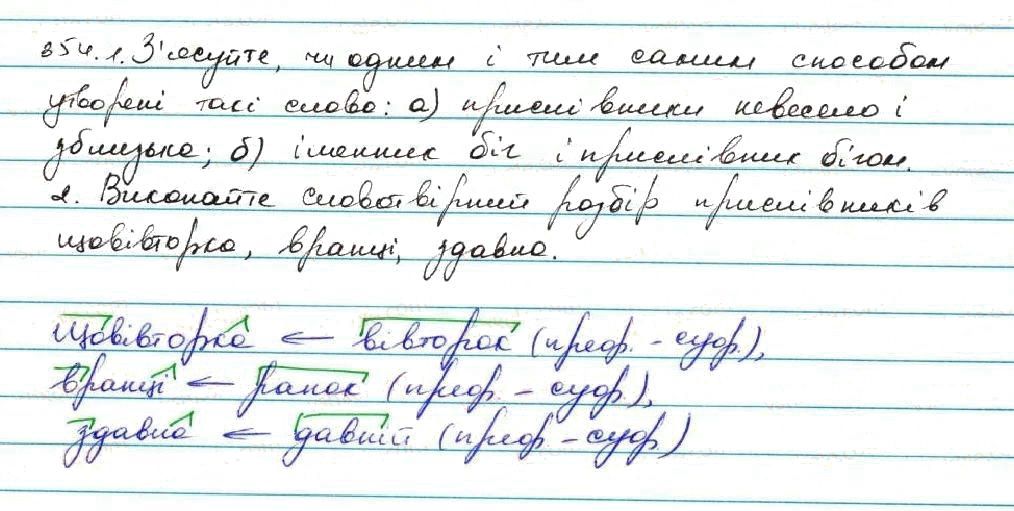 354.1. З'ясуйте, чи одним і тим самим способом
утворені такі слова: а) прислівники невесело і
зблизька; б) іменник біг і прислівник бігом.
2. Виконайте словотвірний розбір прислівників
щовівторка, вранці, здавна.
щовівторка ← вівторок (преф. - суф.),
вранці ← ранок (преф. - суф.),
здавна ← давній (преф - суф)